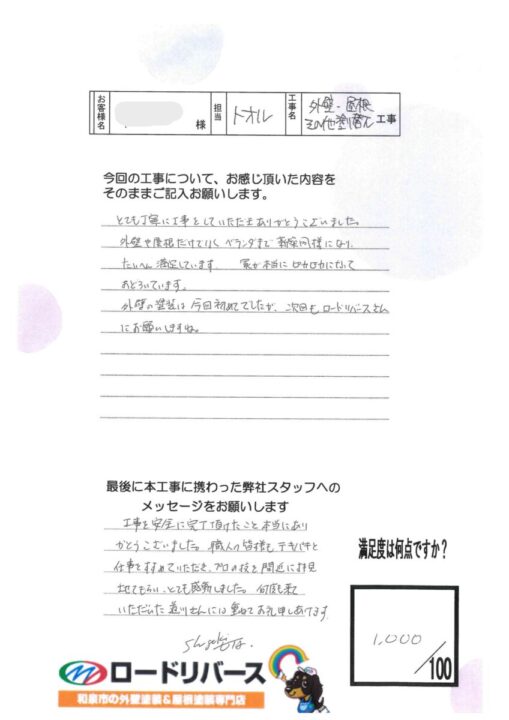 お客様名 様 担当 トオル 工事名 外壁・屋根 その他塗替え 工事
今回の工事について、お感じ頂いた内容を
そのままご記入お願いします。
とても丁寧に工事をしていただきありがとうございました。
外壁や屋根だけでなく ベランダまで 新築同様になり、
たいへん満足しています 家が本当にピカピカになって
おどろいています。
外壁の塗装は今回初めてでしたが、次回もロードリバースさん
にお願いしますね。
最後に本工事に携わった弊社スタッフへの
メッセージをお願いします
工事を安全に完了頂けたこと本当にあり
がとうございました。職人の皆様も テキパキと
仕事をすすめていただき、プロの技を間近に拝見
させてもらい、とても感動しました。何度も来て
いただいた さんには重ねてお礼申しあげます
満足度は何点ですか?
1,000
/100
ロードリバース
和泉市の外壁塗装&屋根塗装専門店